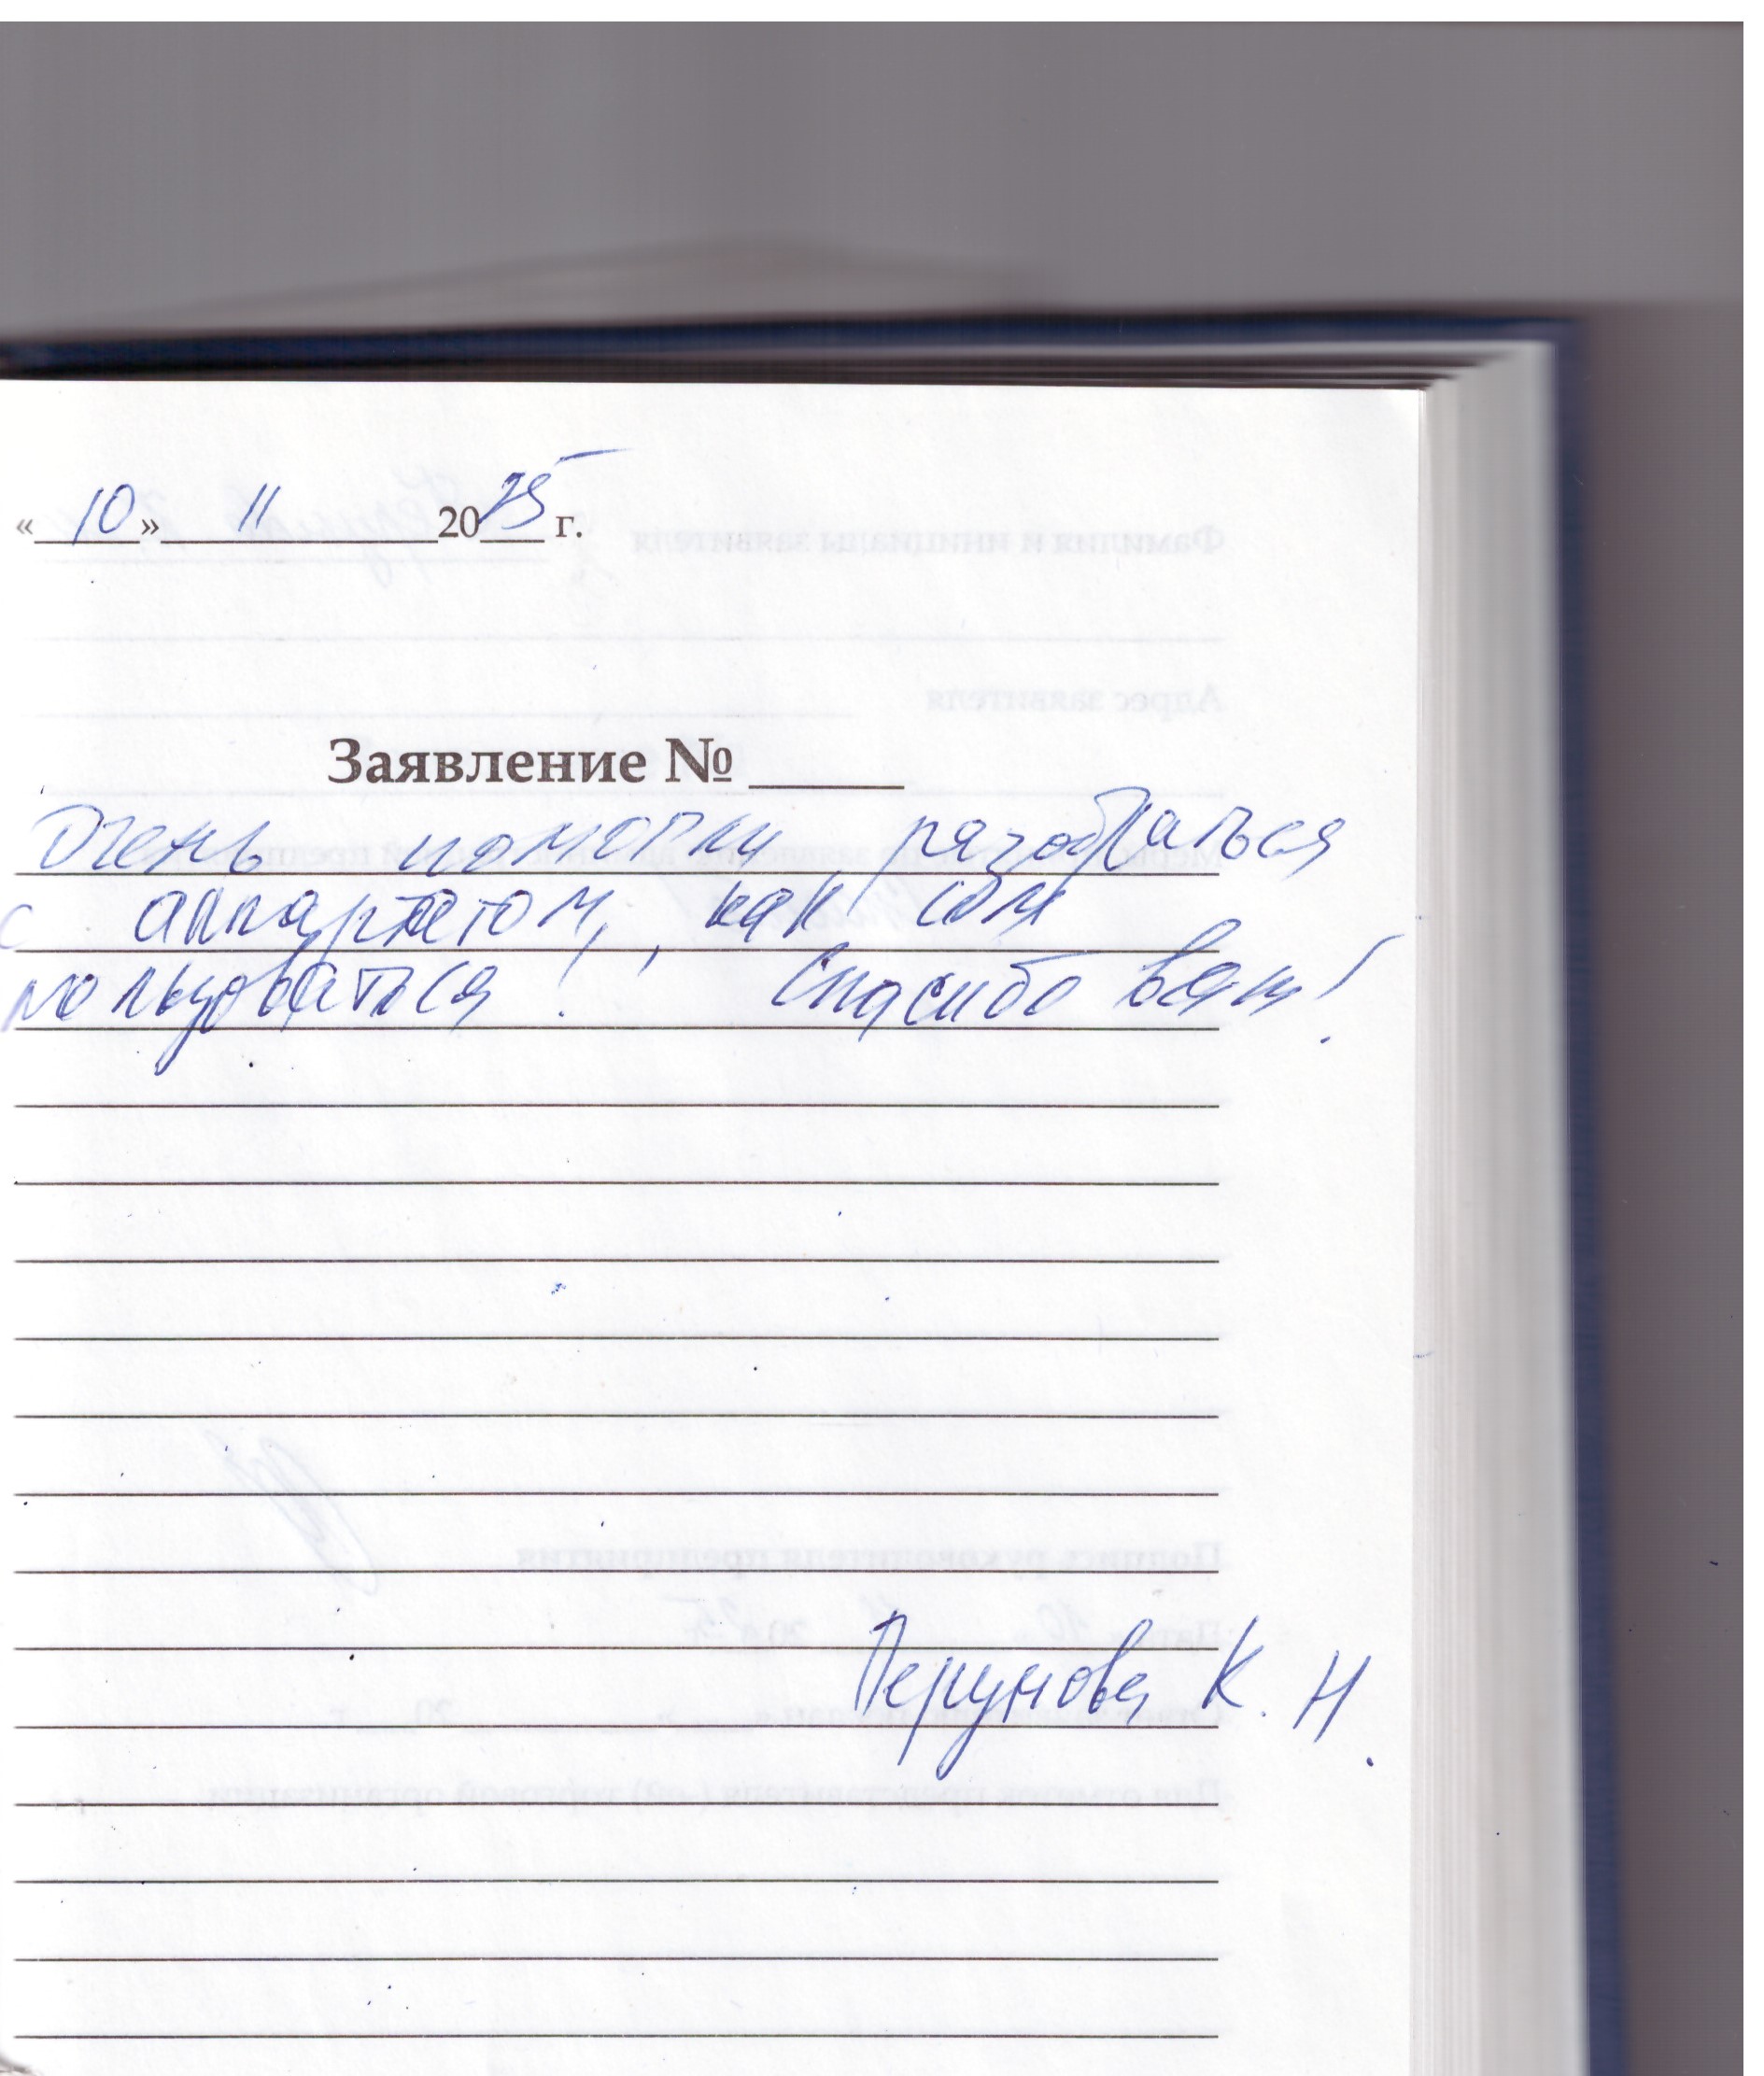 «10» 11 2025 г.
Заявление №
Очень помогли разобраться
с аппаратом, как им
пользоваться! Спасибо вам!
Перунова К. Н.